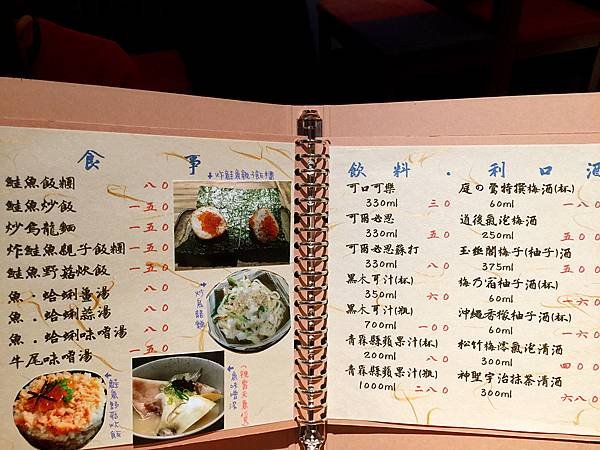 食事
鮭魚飯糰 八〇
鮭魚炒飯 一五〇
炒烏龍麵 一五〇
炸鮭魚親子飯糰 一五〇
鮭魚野菇炊飯 一五〇
魚．蛤蜊薑湯 八〇
魚．蛤蜊蒜湯 八〇
魚．蛤蜊味噌湯 八〇
牛尾味噌湯 一五〇
炸鮭魚親子飯糰
炒烏龍麵
鮭魚野菇炊飯
魚味噌湯
飲料．利口酒
可口可樂
330ml 三〇
可爾必思
250ml 五〇
可爾必思蘇打
330ml 八〇
黑木可汁(杯)
350ml 六〇
黑木可汁(瓶)
700ml 一〇〇
青森縣蘋果汁(杯)
200ml 八〇
青森縣蘋果汁(瓶)
1000ml 二八〇
庭の鶯特撰梅酒(杯)
60ml 一八〇
道後氣泡梅酒
250ml 一五〇
玉極閣梅子(柚子)酒
375ml 五〇
梅乃宿柚子酒(杯)
60ml 一六〇
沖繩香檬柚子酒(杯)
60ml 一六〇
松竹梅澪氣泡清酒
300ml 四〇〇
神聖宇治抹茶清酒
300ml 六八〇